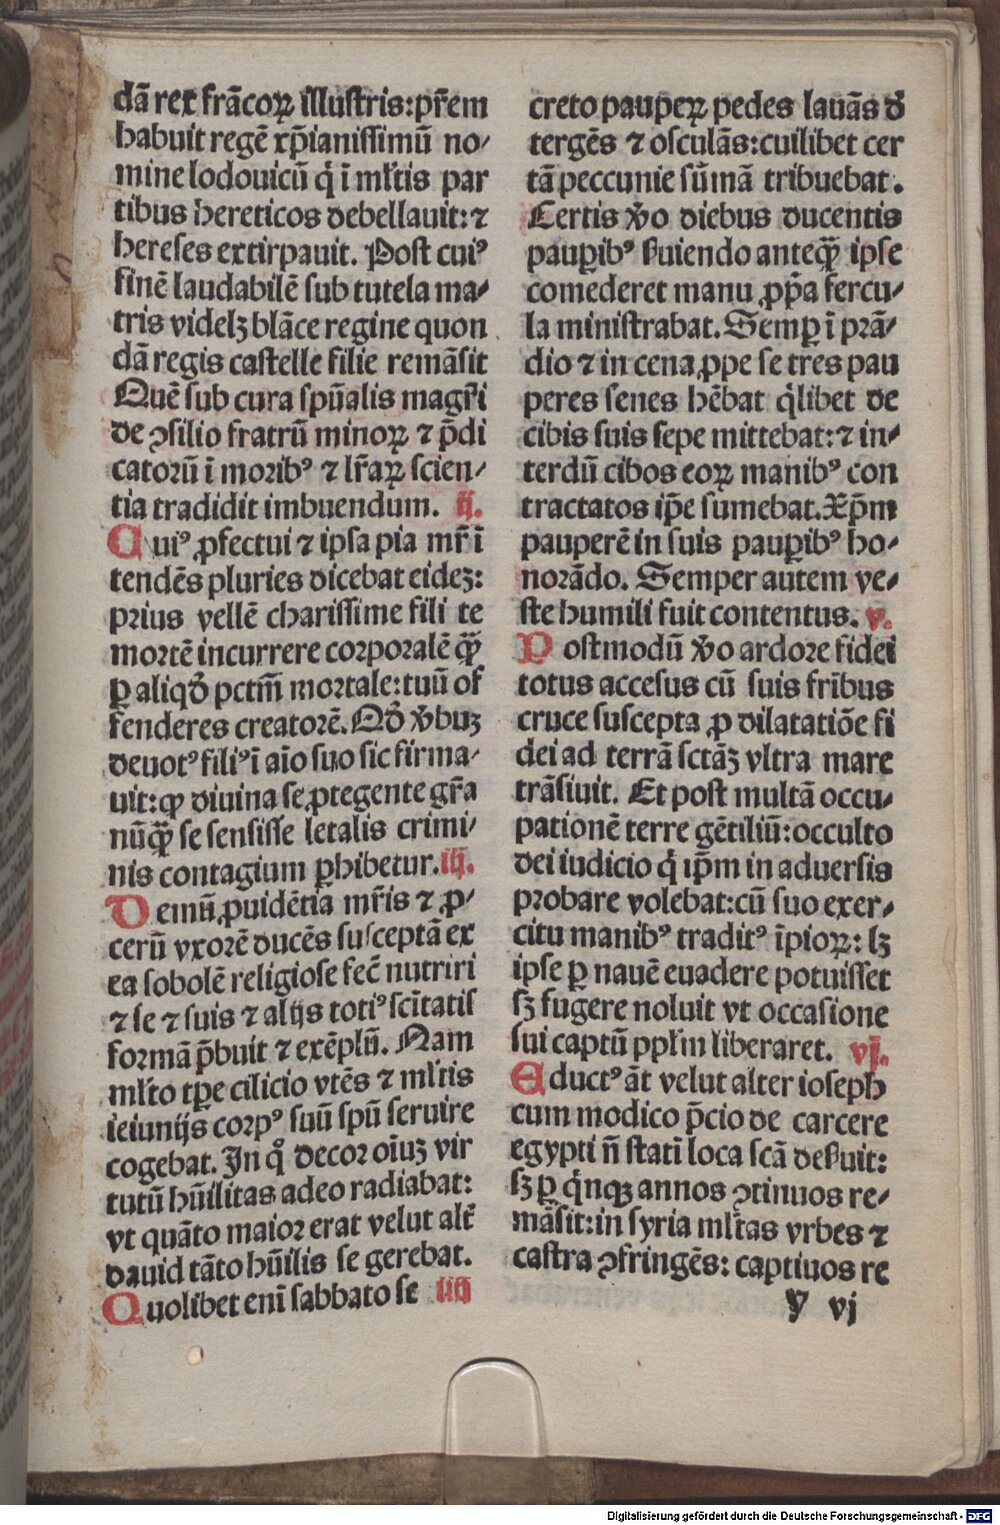 dā rex frācoꝝ illustris:pr̄em
habuit regē xp̄ianissimū no⸗
mine lodouicū q̇ ī ml̄tis par
tibus hereticos debellauit:⁊
hereses extirpauit. Post cuiꝰ
finē laudabilē sub tutela ma⸗
tris videlꝫ blāce regine quon
dā regis castelle filie remāsit
Quē sub cura spūalis magr̄i
de ꝯsilio fratrū minoꝝ ⁊ p̄di
catorū ī moribꝰ ⁊ lr̄aꝝ scien⸗
tia tradidit imbuendum. ij.
Cuiꝰ ꝓfectui ⁊ ipsa pia mr̄ ī
tendēs pluries dicebat eideꝫ:
prius vellē charissime fili te
mortē incurrere corporalē qꝫ̄
ꝑ aliqd̄ pctm̄ mortale:tuū of
fenderes creatorē. Qd̄ v̄buꝫ
deuotꝰ filiꝰ ī aīo suo sic firma⸗
uit:ꝙ diuina se ꝓtegente gr̄a
nūqꝫ̄ se sensisse letalis crimi⸗
nis contagium ꝑhibetur. iij.
Demū ꝓuidētia mr̄is ⁊ ꝓ⸗
cerū vxorē ducēs susceptā ex
ea sobolē religiose fec̄ nutriri
⁊ se ⁊ suis ⁊ alijs totiꝰ sc̄itatis
formā p̄buit ⁊ exēplū. Nam
ml̄to tꝑe cilicio vtēs ⁊ ml̄tis
ieiunijs corpꝰ suū spū seruire
cogebat. In qͦ decor oīuꝫ vir
tutū hūilitas adeo radiabat:
vt quāto maior erat velut alt̄
dauid tāto hūilis se gerebat.
Quolibet enī sabbato se iiij
creto pauꝑeꝝ pedes lauās d̄
tergēs ⁊ osculās:cuilibet cer
tā peccunie sūmā tribuebat.
Certis v̄o diebus ducentis
pauꝑibꝰ ẜuiendo anteqꝫ̄ ipse
comederet manu ꝓp̄a fercu⸗
la ministrabat. Semꝑ ī prā⸗
dio ⁊ in cena ꝓpe se tres pau
peres senes hēbat q̇libet de
cibis suis sepe mittebat:⁊ in⸗
terdū cibos eoꝝ manibꝰ con
tractatos ip̄e sumebat. Xp̄m
pauperē in suis pauꝑibꝰ ho⸗
norādo. Semper autem ve⸗
ste humili fuit contentus. v.
Postmodū v̄o ardore fidei
totus accēsus cū suis frībus
cruce suscepta ꝓ dilatatiōe fi
dei ad terrā sctāꝫ vltra mare
trāsiuit. Et post multā occu⸗
pationē terre gētiliū:occulto
dei iudicio q̇ ip̄m in aduersis
probare volebat:cū suo exer⸗
citu manibꝰ traditꝰ īpioꝝ: lꝫ
ipse ꝑ nauē euadere potuisset
sꝫ fugere noluit vt occasione
sui captū ppl̄m liberaret. vj.
Eductꝰ āt velut alter ioseph
cum modico p̄cio de carcere
egypti n̄ statī loca scā deẜuit:
sꝫ ꝑ q̇nqꝫ annos ꝯtinuos re⸗
māsit:in syria ml̄tas vrbes ⁊
castra ꝯfringēs: captiuos re
y vj
Digitalisierung gefördert durch die Deutsche Forschungsgemeinschaft - DFG